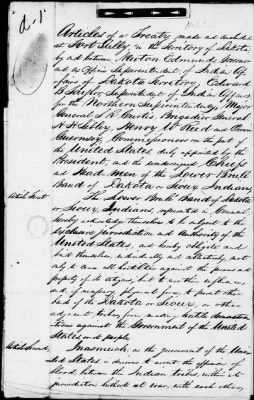 Articles of a Treaty made and concluded
at Fort Sully, in the Territory of Dakota,
by and between Newton Edmunds, Governor
and ex officio Superintendent of Indian Af-
fairs of Dakota Territory, Edward
B. Taylor, Superintendent of Indian Affairs
for the Northern Superintendency, Major
General S. R. Curtis, Brigadier General
H. H. Sibley, Henry W. Reed and Orrin
Guernsey, Commissioners on the part of
the United States duly appointed by the
President, and the undersigned Chiefs
and Head Men of the Lower Brulé
Band of Dakota or Sioux Indians
Article First
The Lower Brulé Band of Dakota
or Sioux Indians, represented in Council
hereby acknowledge themselves to be subject to the
exclusive jurisdiction and authority of the
United States, and hereby obligate and
bind themselves, individually and collectively, not
only to cease all hostilities against the persons and
property of its citizens, but to use their influence
and, if necessary, physical force, to prevent other
bands of the Dakota or Sioux, or other
adjacent tribes, from making hostile demonstra-
tions against the Government of the United
States or its people.
Article Second
Inasmuch as the government of the Uni-
ted States is desirous to arrest the effusion of
blood between the Indian tribes within its
jurisdiction hitherto at war with each other,